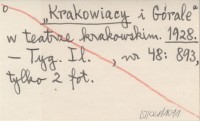 „Krakowiacy i Górale"
w teatrze krakowskim. 1928.
— Tyg. Il., nr 48: 893,
tylko 2 fot.